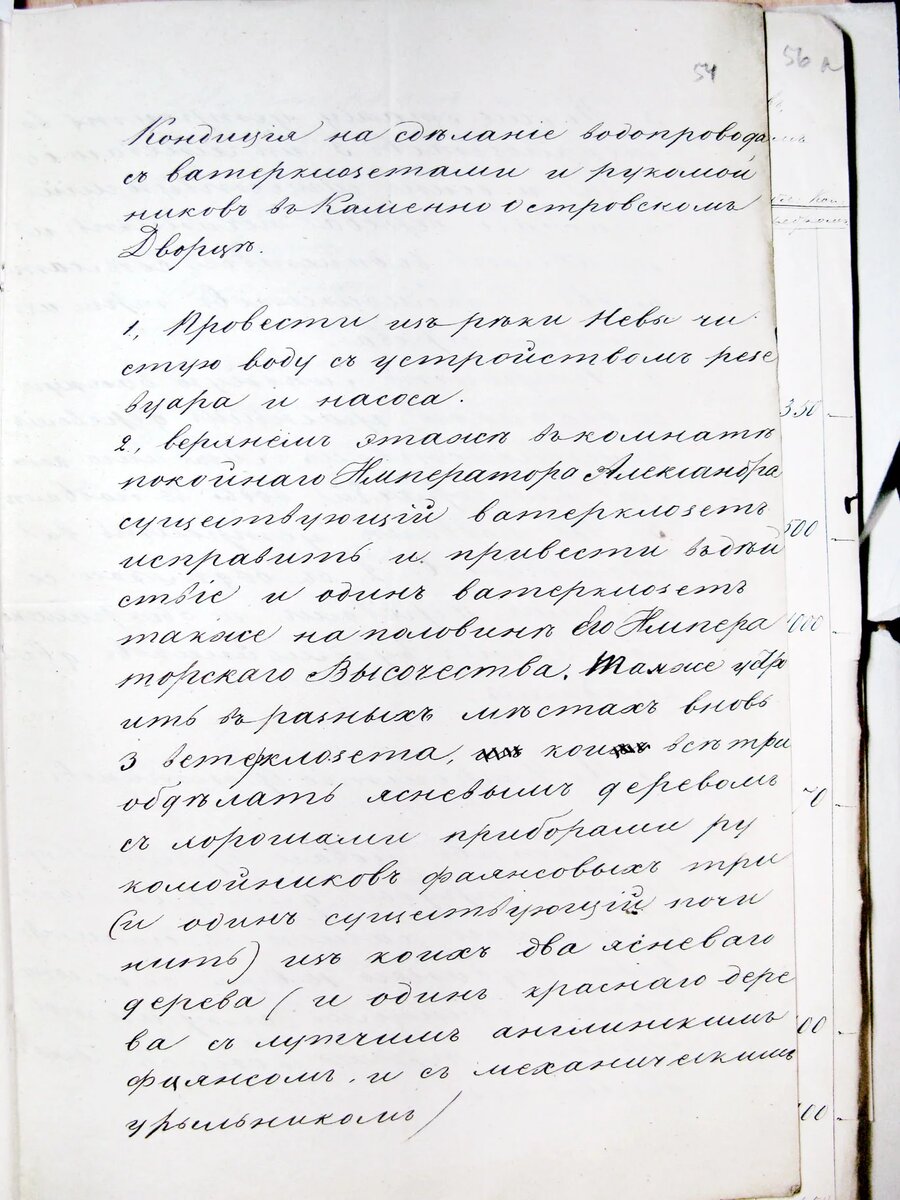 54
56 а
Кондиція на сдѣланіе водопровода
съ ватерклозетами и рукомой
никовъ въ Каменно Островскомъ
Дворцѣ.
1, Провести изъ рѣки Невы чи
стую воду съ устройствомъ резе
вуара и насоса.
2, верхнемъ этажѣ въ комнатѣ
покойнаго Императора Александра
существующій ватерклозетъ
исправить и привести въ дѣй
ствіе и одинъ ватерклозетъ
также на половинѣ Его Импера
торскаго Высочества. Также устро
ить въ разныхъ мѣстахъ вновь
3 ветерклозета, кои всѣ три
обдѣлать ясневымъ деревомъ
съ хорошами приборами ру
комойниковъ фаянсовыхъ три
(и одинъ существующій почи
нить) изъ коихъ два ясневаго
дерева (и одинъ краснаго дере
ва съ лутчимъ англинскимъ
фаянсомъ. и съ механическимъ
урыльникомъ)
350
500